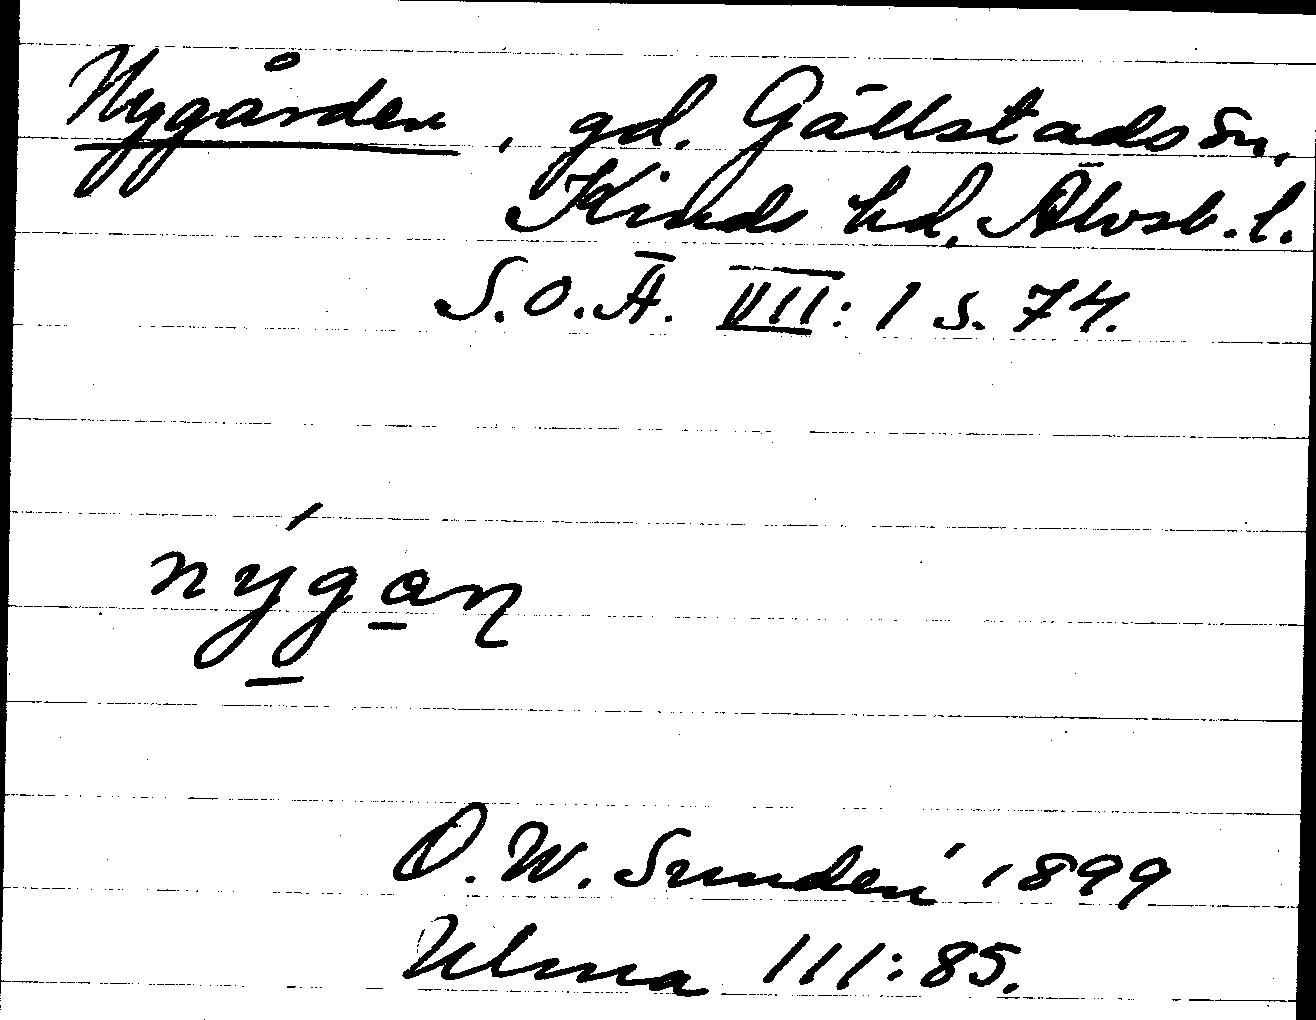 Nygården, gd. Gällstads sn,
Kinds hd, Älvsb. l.
S.O.Ä. VII: 1 s. 74.
nýgan
D. W. Sundén 1899
Ulma 111:85.